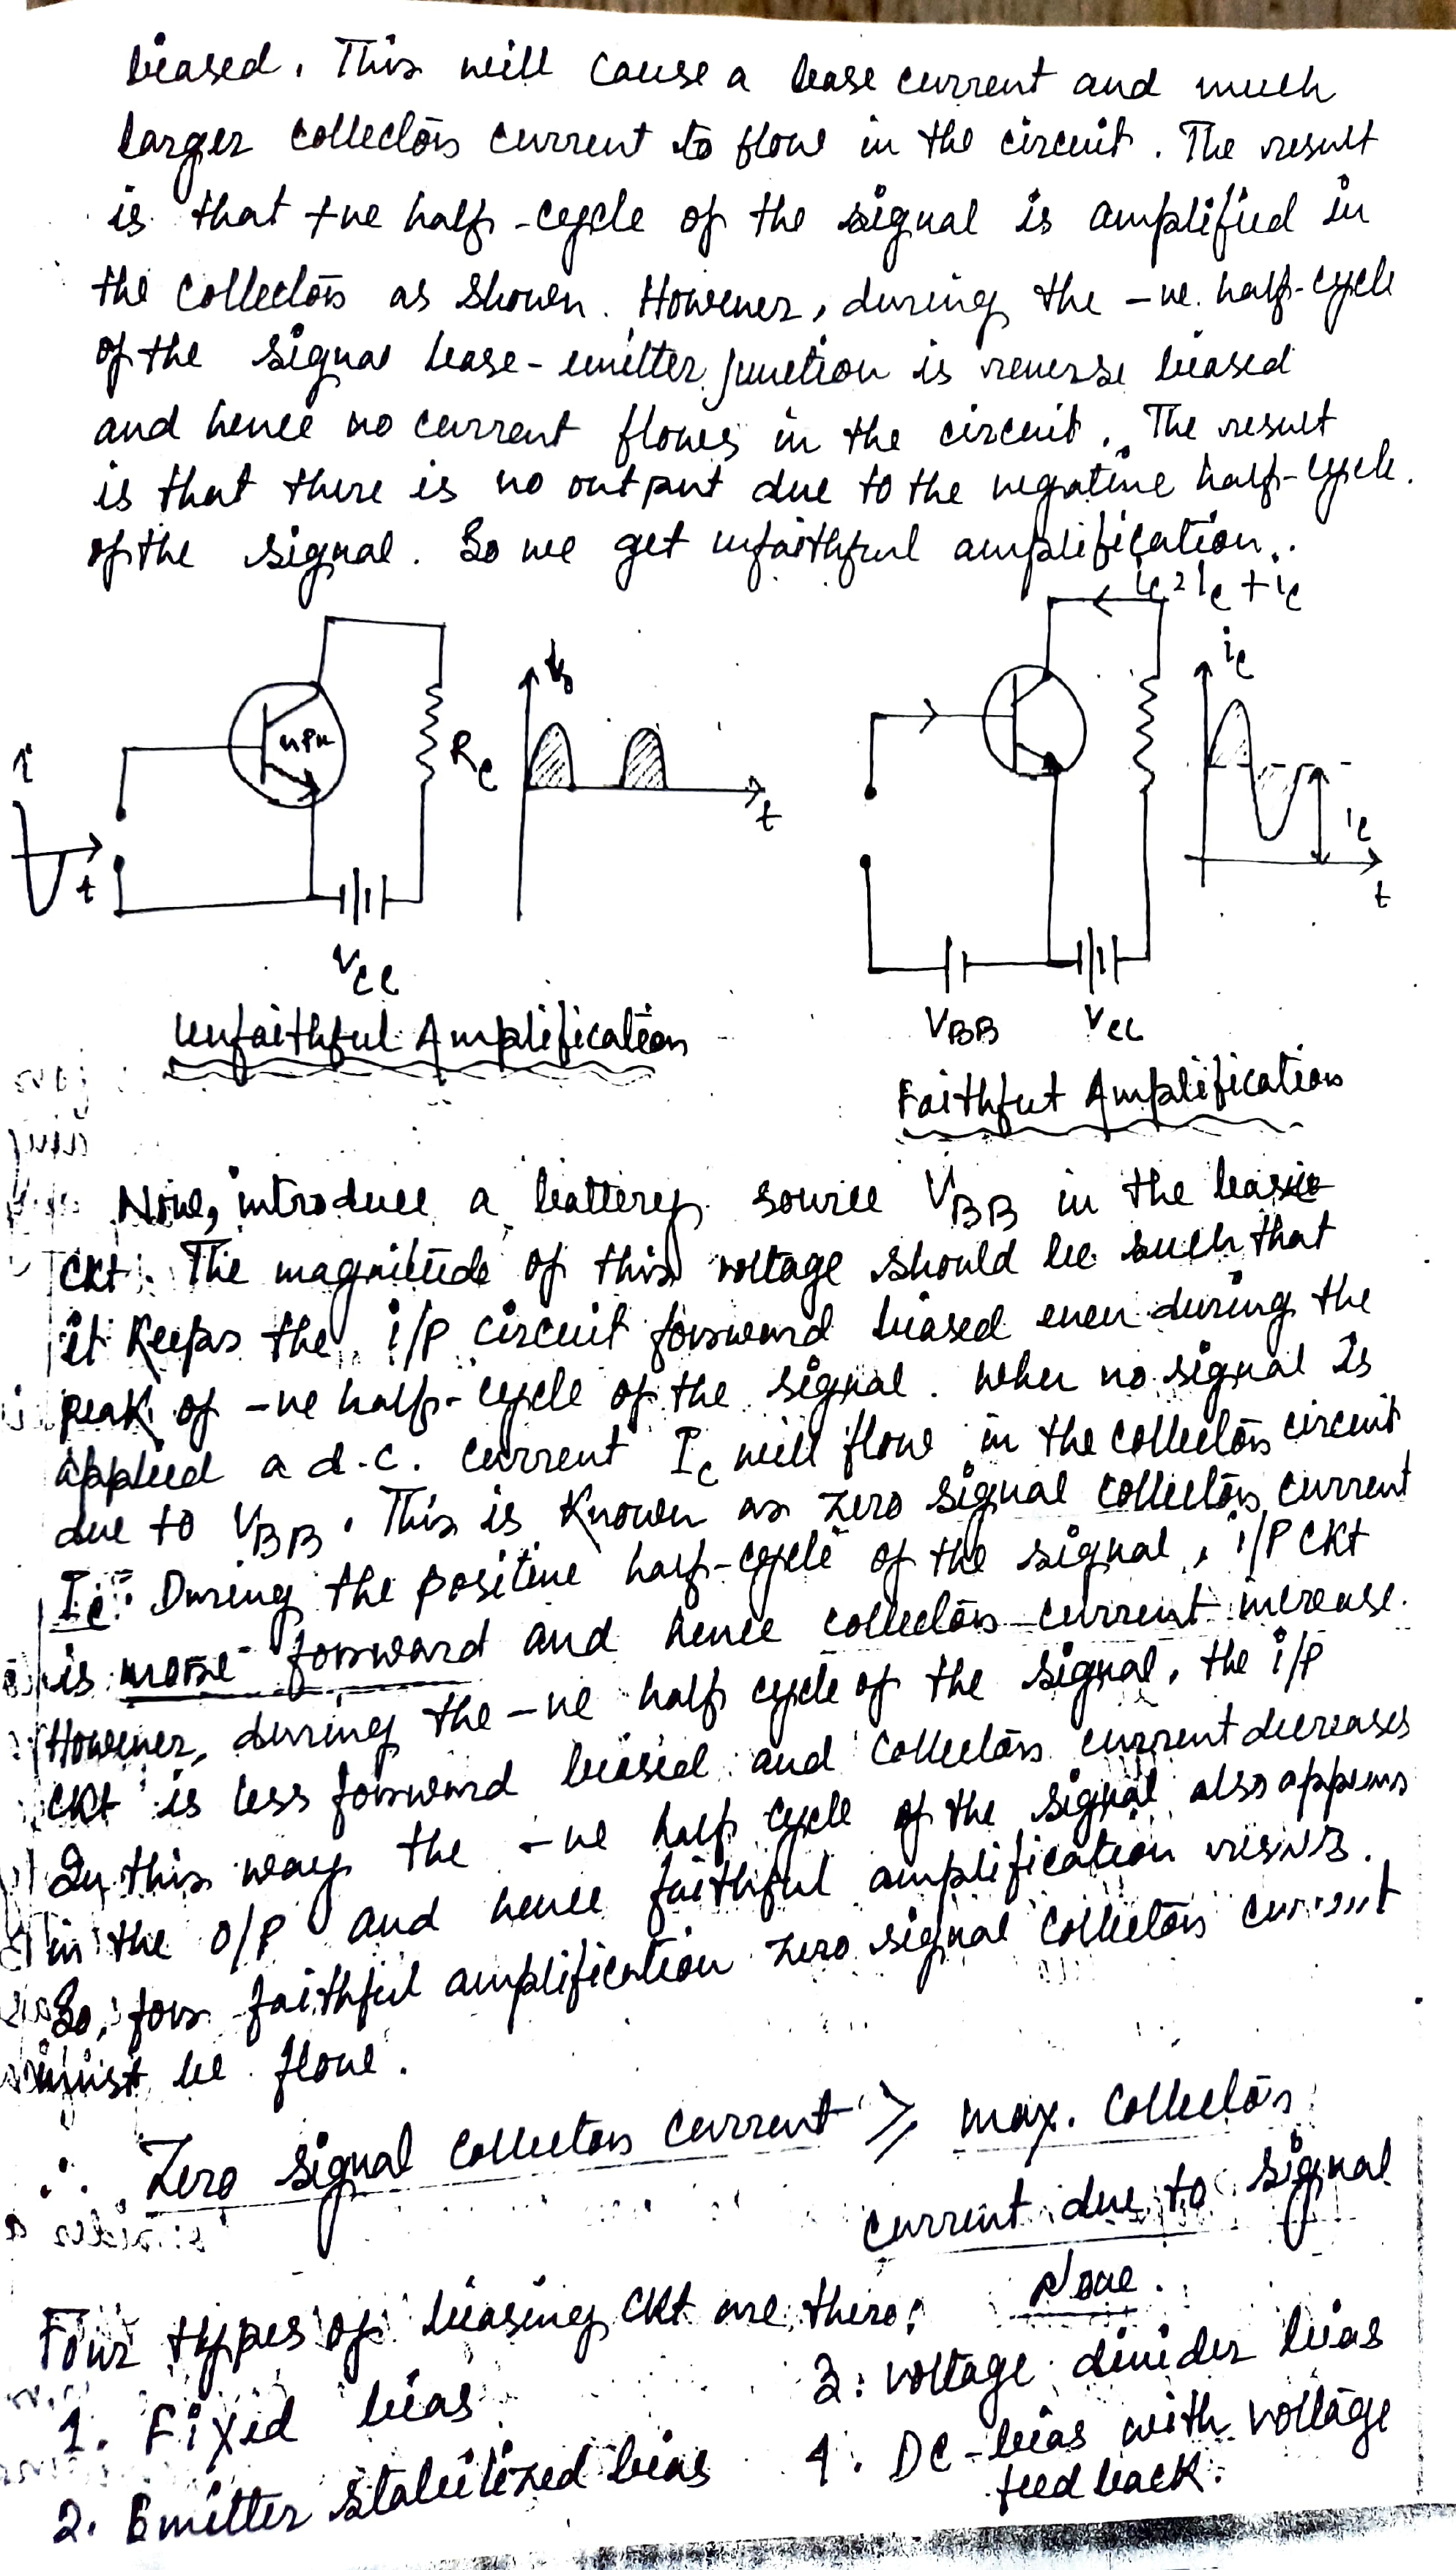 biased. This will cause a base current and much
larger collector current to flow in the circuit. The result
is that +ve half-cycle of the signal is amplified in
the collector as shown. However, during the -ve. half-cycle
of the signal base-emitter junction is reverse biased
and hence no current flows in the circuit. The result
is that there is no output due to the negative half-cycle.
of the signal. So we get unfaithful amplification.
ic = Ic + ic
npn
RC
t
t
VCC
Unfaithful Amplification
ic
t
VBB VCC
Faithful Amplification
Now, introduce a battery source VBB in the
ckt. The magnitude of this voltage should be such that
it keeps the i/p circuit forward biased even during the
peak of -ve half-cycle of the signal. When no signal is
applied a d.c. current Ic will flow in the collector circuit
due to VBB. This is known as zero signal collector current
Ic. During the positive half-cycle of the signal, i/p ckt
is more forward and hence collector current increase.
However, during the -ve half cycle of the signal, the i/p
ckt is less forward biased and collector current decreases
In this way the -ve half cycle of the signal also appears
in the o/p and hence faithful amplification results.
So, for faithful amplification zero signal collector current
must be flow.
∴ Zero signal collector current ≥ max. collector
current due to signal
alone.
Four types of biasing ckt are there:
1. Fixed bias
2. Emitter stabilized bias
3. voltage divider bias
4. DC-bias with voltage
feedback.